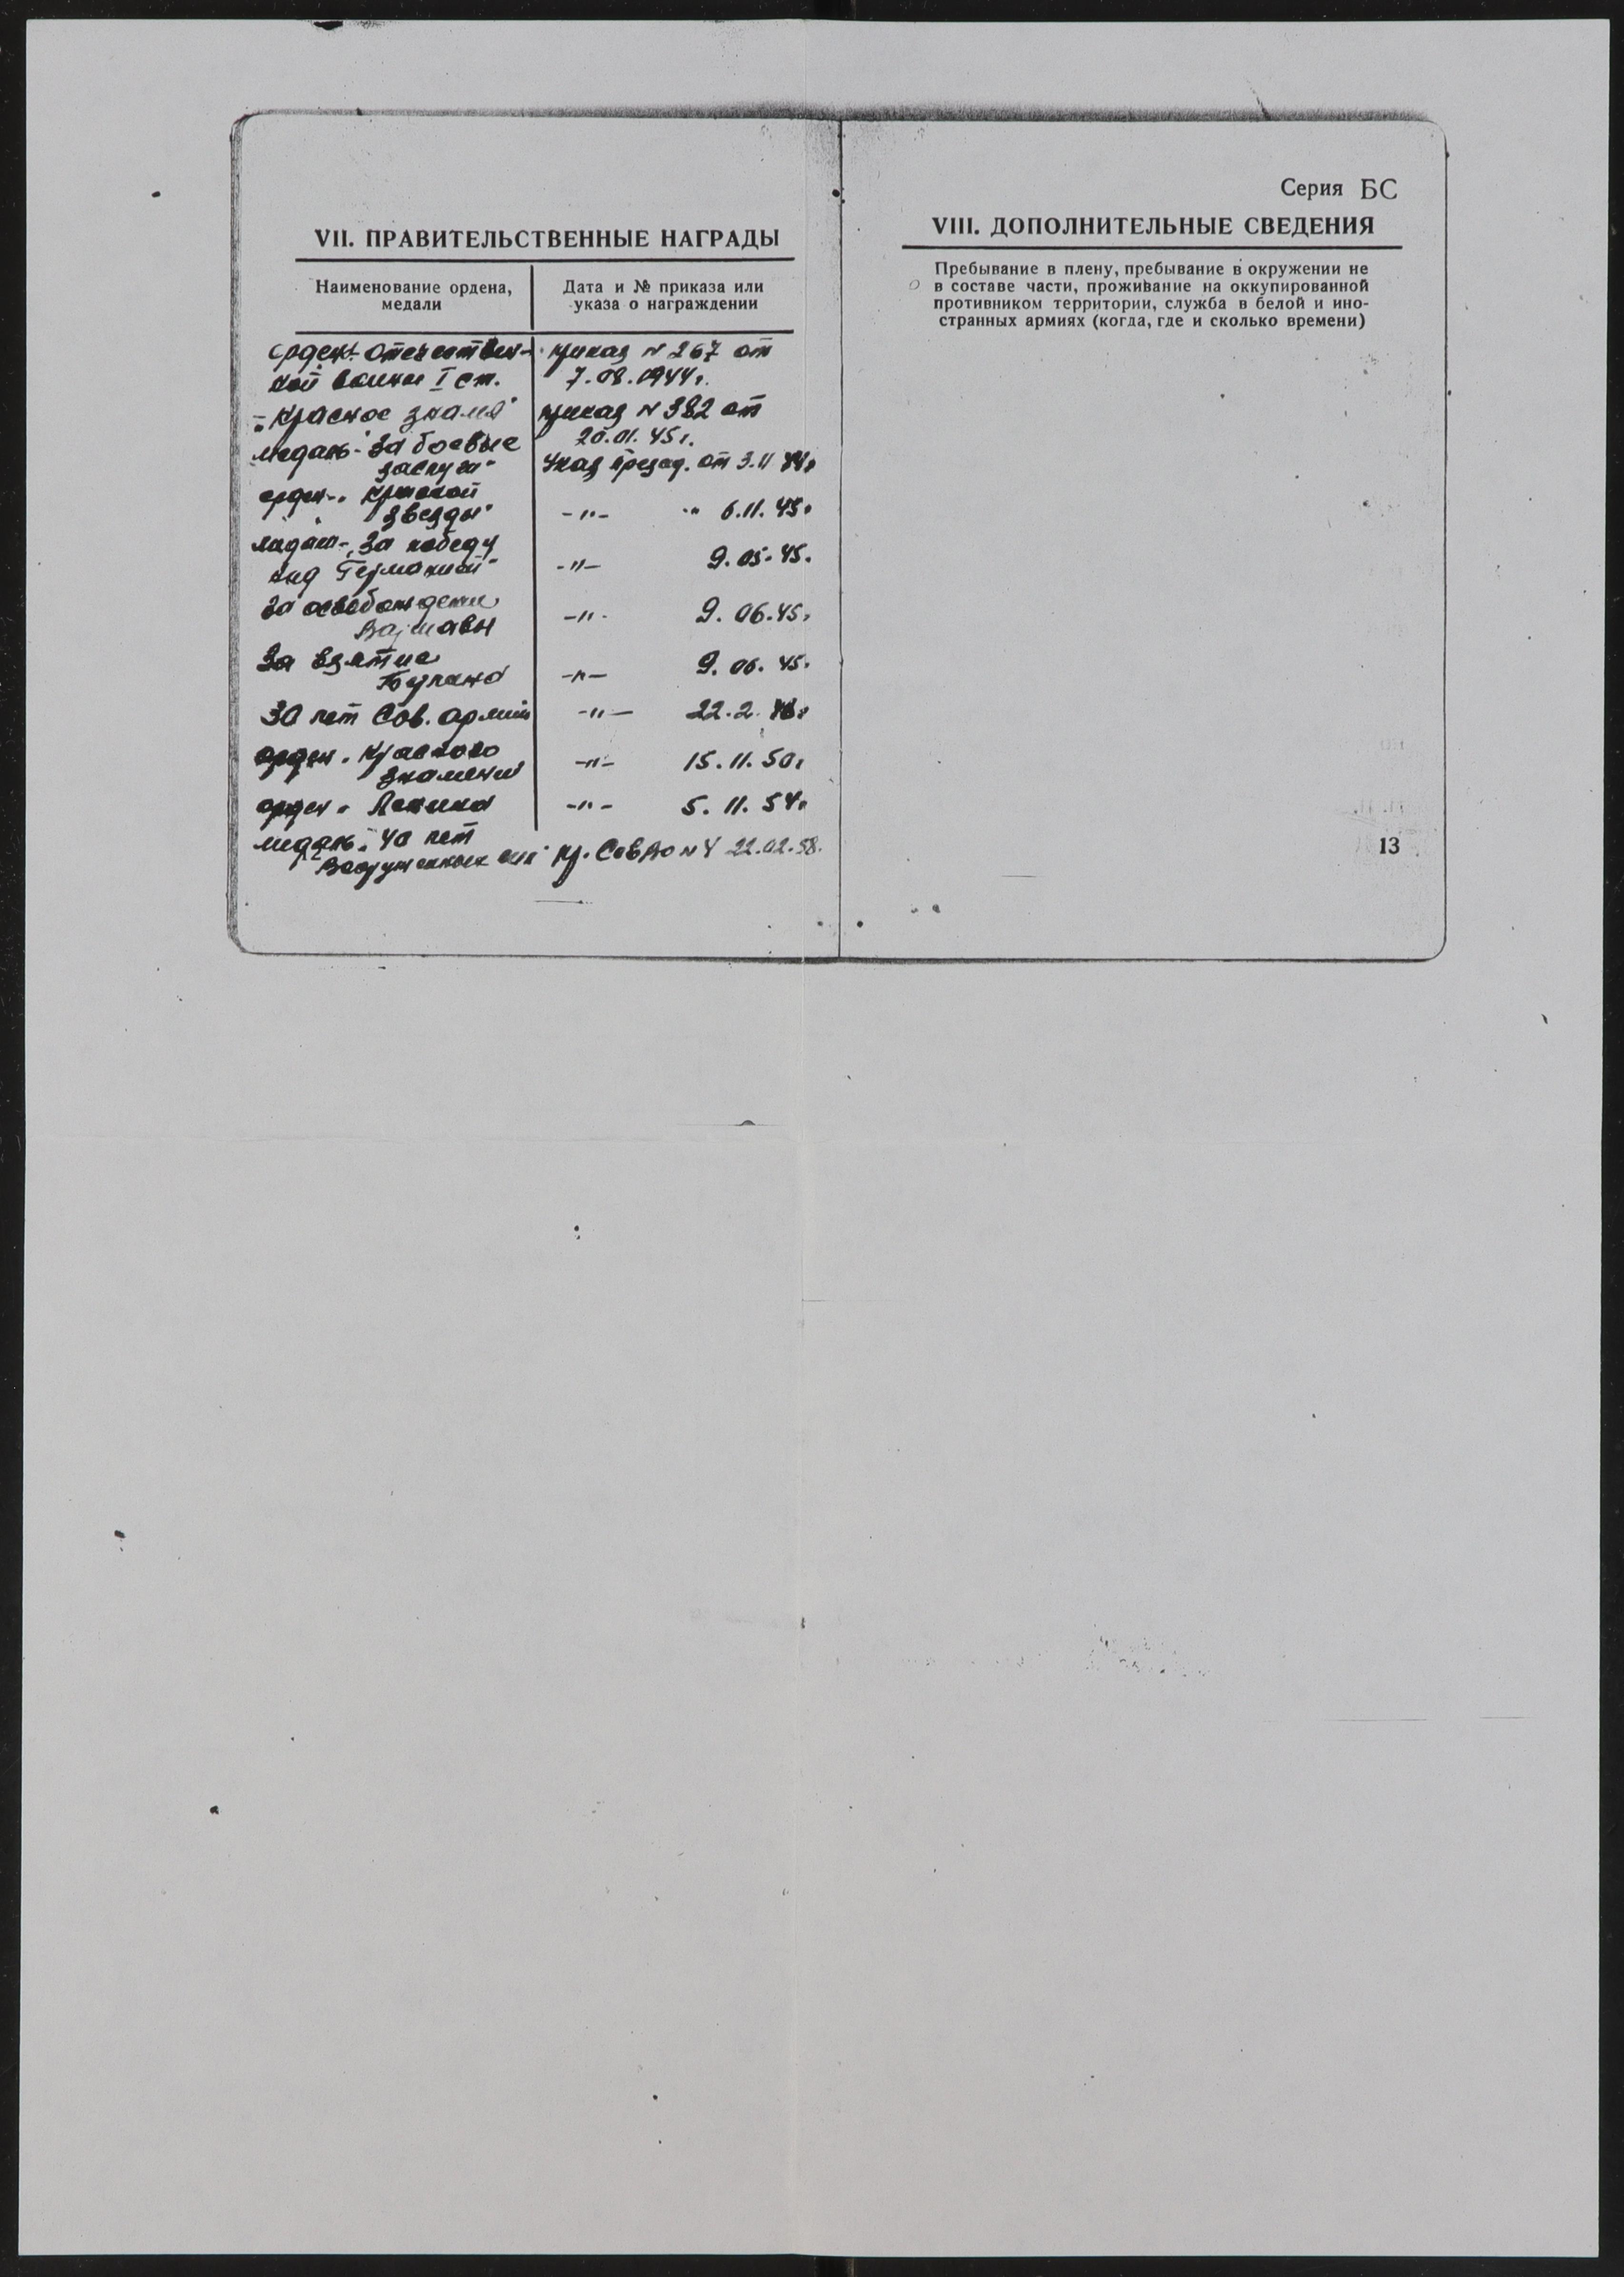 VII. ПРАВИТЕЛЬСТВЕННЫЕ НАГРАДЫ
Наименование ордена, медали
Дата и № приказа или указа о награждении
орден-отечествен- приказ N 267 от
ной войны I ст. 7.08.1944г.
"Красное знамя" приказ N 382 от
20.01.45г.
медаль-"За боевые
заслуги" Указ презид. от 3.11.44г
орден-"Красной
звезды" -"- " 6.11.45г
медаль-"За победу
над Германией" -"- 9.05.45.
За освобождение
Варшавы -"- 9.06.45г
За взятие
Берлина -"- 9.06.45.
30 лет Сов. армии -"- 22.2.48г
орден "Красного
знамени" -"- 15.11.50г
орден "Ленина -"- 5.11.54г
медаль "40 лет
Вооруженных сил" пр. СевВО N 4 22.02.58.
Серия БС
VIII. ДОПОЛНИТЕЛЬНЫЕ СВЕДЕНИЯ
Пребывание в плену, пребывание в окружении не
в составе части, проживание на оккупированной
противником территории, служба в белой и ино-
странных армиях (когда, где и сколько времени)
13